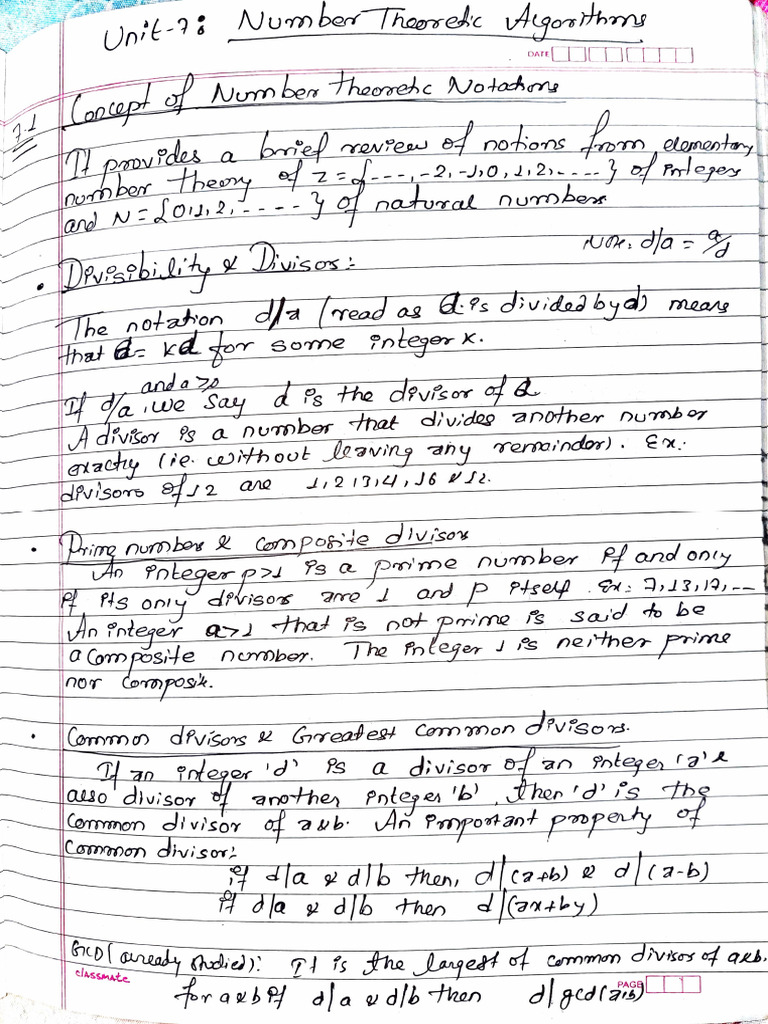 Unit-7: Number Theoretic Algorithms
DATE
7.1 Concept of Number theoretic Notations
It provides a brief review of notions from elementary
number theory of Z = {---, -2, -1, 0, 1, 2, ----} of integers
and N = {0, 1, 2, -----} of natural numbers
Note: d/a = a/d
• Divisibility & Divisors:-
The notation d/a (read as a is divided by d) means
that a = kd for some integer k.
and a≥0
If d/a, we say d is the divisor of a
A divisor is a number that divides another number
exactly (ie. without leaving any remainder). Ex:
divisors of 12 are 1, 2, 3, 4, 6 & 12.
• Prime numbers & composite divisors
An integer p>1 is a prime number if and only
if its only divisors are 1 and p itself. Ex: 7, 13, 17, --
An integer a>1 that is not prime is said to be
a composite number. The integer 1 is neither prime
nor composite.
• Common divisors & Greatest common divisors.
If an integer 'd' is a divisor of an integer 'a' &
also divisor of another integer 'b', then 'd' is the
common divisor of a&b. An important property of
common divisor:-
if d|a & d|b then, d|(a+b) & d|(a-b)
if d|a & d|b then d|(ax+by)
GCD (already studied): It is the largest of common divisor of a&b.
classmate
PAGE
for a&b if d|a & d|b then d|gcd(a,b)